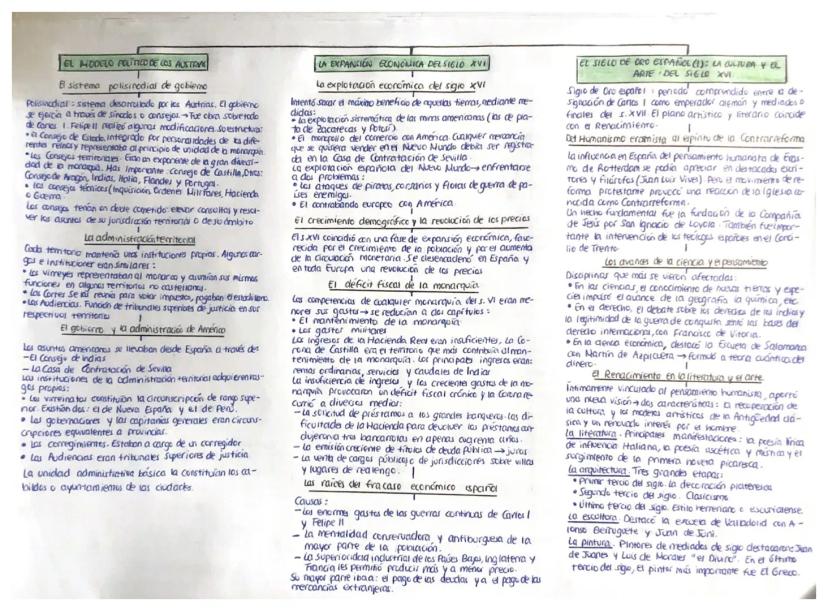 EL MODELO POLÍTICO DE LOS AUSTRIAS
El sistema polisinodial de gobierno
Polisinodial: sistema desarrollado por los Austrias. El gobierno
se ejercía a través de sínodos o consejos → Fue obra sobretodo
de Carlos I. Felipe II realizó algunas modificaciones. Su estructura:
• El Consejo de Estado, integrado por personalidades de los dife-
rentes reinos y representaba al principio de unidad de la monarquía
• Los Consejos territoriales. Eran un exponente de la gran diversi-
dad de la monarquía. Más importante: Consejo de Castilla, Otros:
Consejo de Aragón, Indias, Italia, Flandes y Portugal.
• Los consejos técnicos (Inquisición, Órdenes Militares, Hacienda
o Guerra.
Los consejos tenían un doble cometido: elevar consultas y resol-
ver los asuntos de su jurisdicción territorial o de su ámbito
La administración territorial
Cada territorio mantenía unas instituciones propias. Algunos car-
gos e instituciones eran similares:
• Los virreyes representaban al monarca y asumían sus mismas
funciones en algunos territorios no castellanos.
• Las Cortes. Se las reunía para votar impuestos,
• Las Audiencias. Función de tribunales superiores de justicia en sus
respectivos territorios
El gobierno y la administración de América
Los asuntos americanos se llevaban desde España a través de:
- El Consejo de Indias
- La Casa de Contratación de Sevilla
Las instituciones de la administración territorial adquieren ras-
gos propios:
• Los virreinatos constituían la circunscripción de rango supe-
rior. Existían dos: el de Nueva España y el de Perú.
• Las gobernaciones y las capitanías generales eran circuns-
cripciones equivalentes a provincias.
• Los corregimientos. Estaban a cargo de un corregidor
• Las Audiencias eran tribunales superiores de justicia
La unidad administrativa básica la constituían los ca-
bildos o ayuntamientos de las ciudades.
LA EXPANSIÓN ECONÓMICA DEL SIGLO XVI
La explotación económica del siglo XVI
Intentó sacar el máximo beneficio de aquellas tierras, mediante me-
didas:
• La explotación sistemática de las minas americanas (las de pla-
ta de Zacatecas y Potosí).
• El monopolio del comercio con América. Cualquier mercancía
que se quisiera vender en el Nuevo Mundo debía ser registra-
da en la Casa de Contratación de Sevilla.
La explotación española del Nuevo Mundo → enfrentarse
a dos problemas:
• Los ataques de piratas, corsarios y flotas de guerra de paí-
ses enemigos.
• El contrabando europeo con América.
El crecimiento demográfico y la revolución de los precios
El s.XVI coincidió con una fase de expansión económica, favo-
recida por el crecimiento de la población y por el aumento
de la circulación monetaria. Se desencadenó en España y
en toda Europa una revolución de los precios
El déficit fiscal de la monarquía
Las competencias de cualquier monarquía del s. VI eran me-
nores. Sus gastos → se reducían a dos capítulos:
• El mantenimiento de la monarquía
• Los gastos militares
Los ingresos de la Hacienda Real eran insuficientes, la Co-
rona de Castilla era el territorio que más contribuía al man-
tenimiento de la monarquía. Los principales ingresos eran:
rentas ordinarias, servicios y caudales de Indias
La insuficiencia de ingresos y los crecientes gastos de la mo-
narquía provocaron un déficit fiscal crónico y la Corona re-
currió a diversos medios:
- La solicitud de préstamos a los grandes banqueros. Las di-
ficultades de la Hacienda para devolver los préstamos con-
dujeron a tres bancarrotas en apenas cuarenta años.
- La emisión creciente de títulos de deuda pública → juros
- La venta de cargos públicos o de jurisdicciones sobre villas
y lugares de realengo.
Las raíces del fracaso económico español
Causas:
- Los enormes gastos de las guerras continuas de Carlos I
y Felipe II
- La mentalidad conservadora y antiburguesa de la
mayor parte de la población.
- La superioridad industrial de los Países Bajos, Inglaterra y
Francia les permitió producir más y a menor precio.
Su mayor parte iba a: el pago de las deudas y a el pago de las
mercancías extranjeras.
EL SIGLO DE ORO ESPAÑOL (I): LA CULTURA Y EL
ARTE DEL SIGLO XVI
Siglo de Oro español: periodo comprendido entre la de-
signación de Carlos I como emperador alemán y mediados o
finales del s. XVII. El plano artístico y literario coincide
con el Renacimiento.
Del Humanismo erasmista al espíritu de la Contrarreforma
La influencia en España del pensamiento humanista de Eras-
mo de Rotterdam se podía apreciar en destacados escri-
tores y filósofos (Juan Luis Vives). Pero el movimiento de re-
forma protestante provocó una reacción de la Iglesia co-
nocida como Contrarreforma.
Un hecho fundamental fue la fundación de la Compañía
de Jesús por San Ignacio de Loyola. También fue impor-
tante la intervención de los teólogos españoles en el Conci-
lio de Trento.
Los avances de la ciencia y el pensamiento
Disciplinas que más se vieron afectadas:
• En las ciencias, el conocimiento de nuevas tierras y espe-
cies impulsó el avance de la geografía, la química, etc.
• En el derecho, el debate sobre los derechos de los indios y
la legitimidad de la guerra de conquista sentó las bases del
derecho internacional, con Francisco de Vitoria.
• En la ciencia económica, destacó la Escuela de Salamanca
con Martín de Azpilcueta → formuló a teoría cuantitativa del
dinero.
El Renacimiento en la literatura y el arte
Íntimamente vinculado al pensamiento humanista, aportó
una nueva visión → dos características: la recuperación de
la cultura y los modelos artísticos de la Antigüedad clá-
sica y un renovado interés por el hombre.
La literatura. Principales manifestaciones: la poesía lírica
de influencia italiana, la poesía ascética y mística y el
surgimiento de la primera novela picaresca.
La arquitectura. Tres grandes etapas:
• Primer tercio del siglo: la decoración plateresca
• Segundo tercio del siglo. Clasicismo
• Último tercio del siglo. Estilo herreriano o escurialense.
La escultura. Destacó la escuela de Valladolid con A-
lonso Berruguete y Juan de Juni.
La pintura. Pintores de mediados de siglo destacaron Juan
de Juanes y Luis de Morales "el Divino". En el último
tercio del siglo, el pintor más importante fue El Greco.